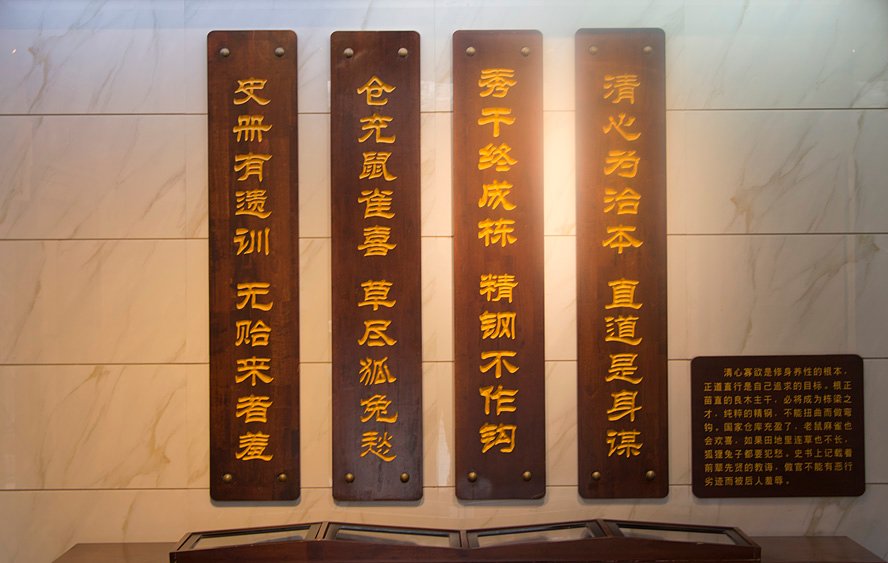 清心为治本 直道是身谋
秀干终成栋 精钢不作钩
仓充鼠雀喜 草尽狐兔愁
史册有遗训 无贻来者羞
清心寡欲是修身养性的根本，
正道直行是自己追求的目标。根正
苗直的良木主干，必将成为栋梁之
才，纯粹的精钢，不能扭曲而做弯
钩。国家仓库充盈了，老鼠麻雀也
会欢喜，如果田地里连草也不长，
狐狸兔子都要犯愁。史书上记载着
前辈先贤的教诲，做官不能有恶行
劣迹而被后人羞辱。